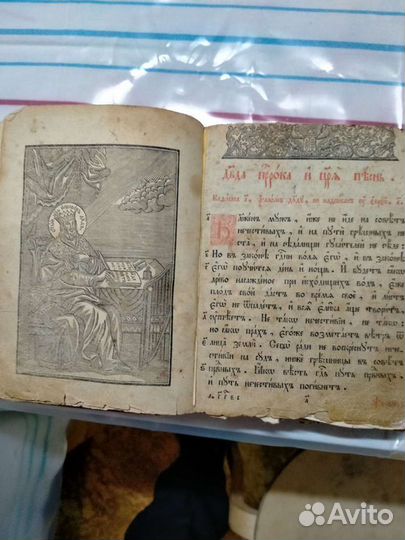 Дв҃да прⷪ҇рока и҆ цр҃ѧ̀ пѣснь.
Каѳісма а҃. Ѱалом дв҃дꙋ, не надписан ѹ҆ є҆врє́й, а҃.
а҃ Блаже́нъ мꙋжъ, и҆́же не и҆́де на совѣ́тъ
нечести́выхъ, и҆ на пꙋтѝ грѣ́шныхъ не
ста̀, и҆ на сѣда́лищи гꙋби́телєй не сѣ́де:
в҃ Но въ зако́нѣ гдⷭ҇ни во́лѧ є҆гѡ̀, и҆ въ зако́нѣ
є҆гѡ̀ поꙋчи́тсѧ де́нь и҆ но́щь. И҆ бꙋ́детъ ꙗ҆́кѡ
дре́во насажде́ное при и҆схо́дищихъ во́дъ, є҆́же
пло́дъ сво́й да́стъ во вре́мѧ своѐ, и҆ ли́стъ
є҆гѡ̀ не ѿпаде́тъ, и҆ всѧ̑, є҆ли̑ка а҆́ще твори́тъ,
ᲂу҆спѣ́етъ. Не та́кѡ нечести́вїи, не та́кѡ:
но ꙗ҆́кѡ пра́хъ, є҆го́же возмета́етъ вѣ́тръ ѿ
лица̀ землѝ. Сегѡ̀ ра́ди не воскре́снꙋтъ нече-
сти́вїи на сꙋ́дъ, нижѐ грѣ̑шницы въ совѣ́тъ
прⷭ҇ныхъ. Ꙗ҆́кѡ вѣ́сть гдⷭ҇ь пꙋ́ть прⷭ҇ныхъ,
и҆ пꙋ́ть нечести́выхъ поги́бнетъ.
Avito